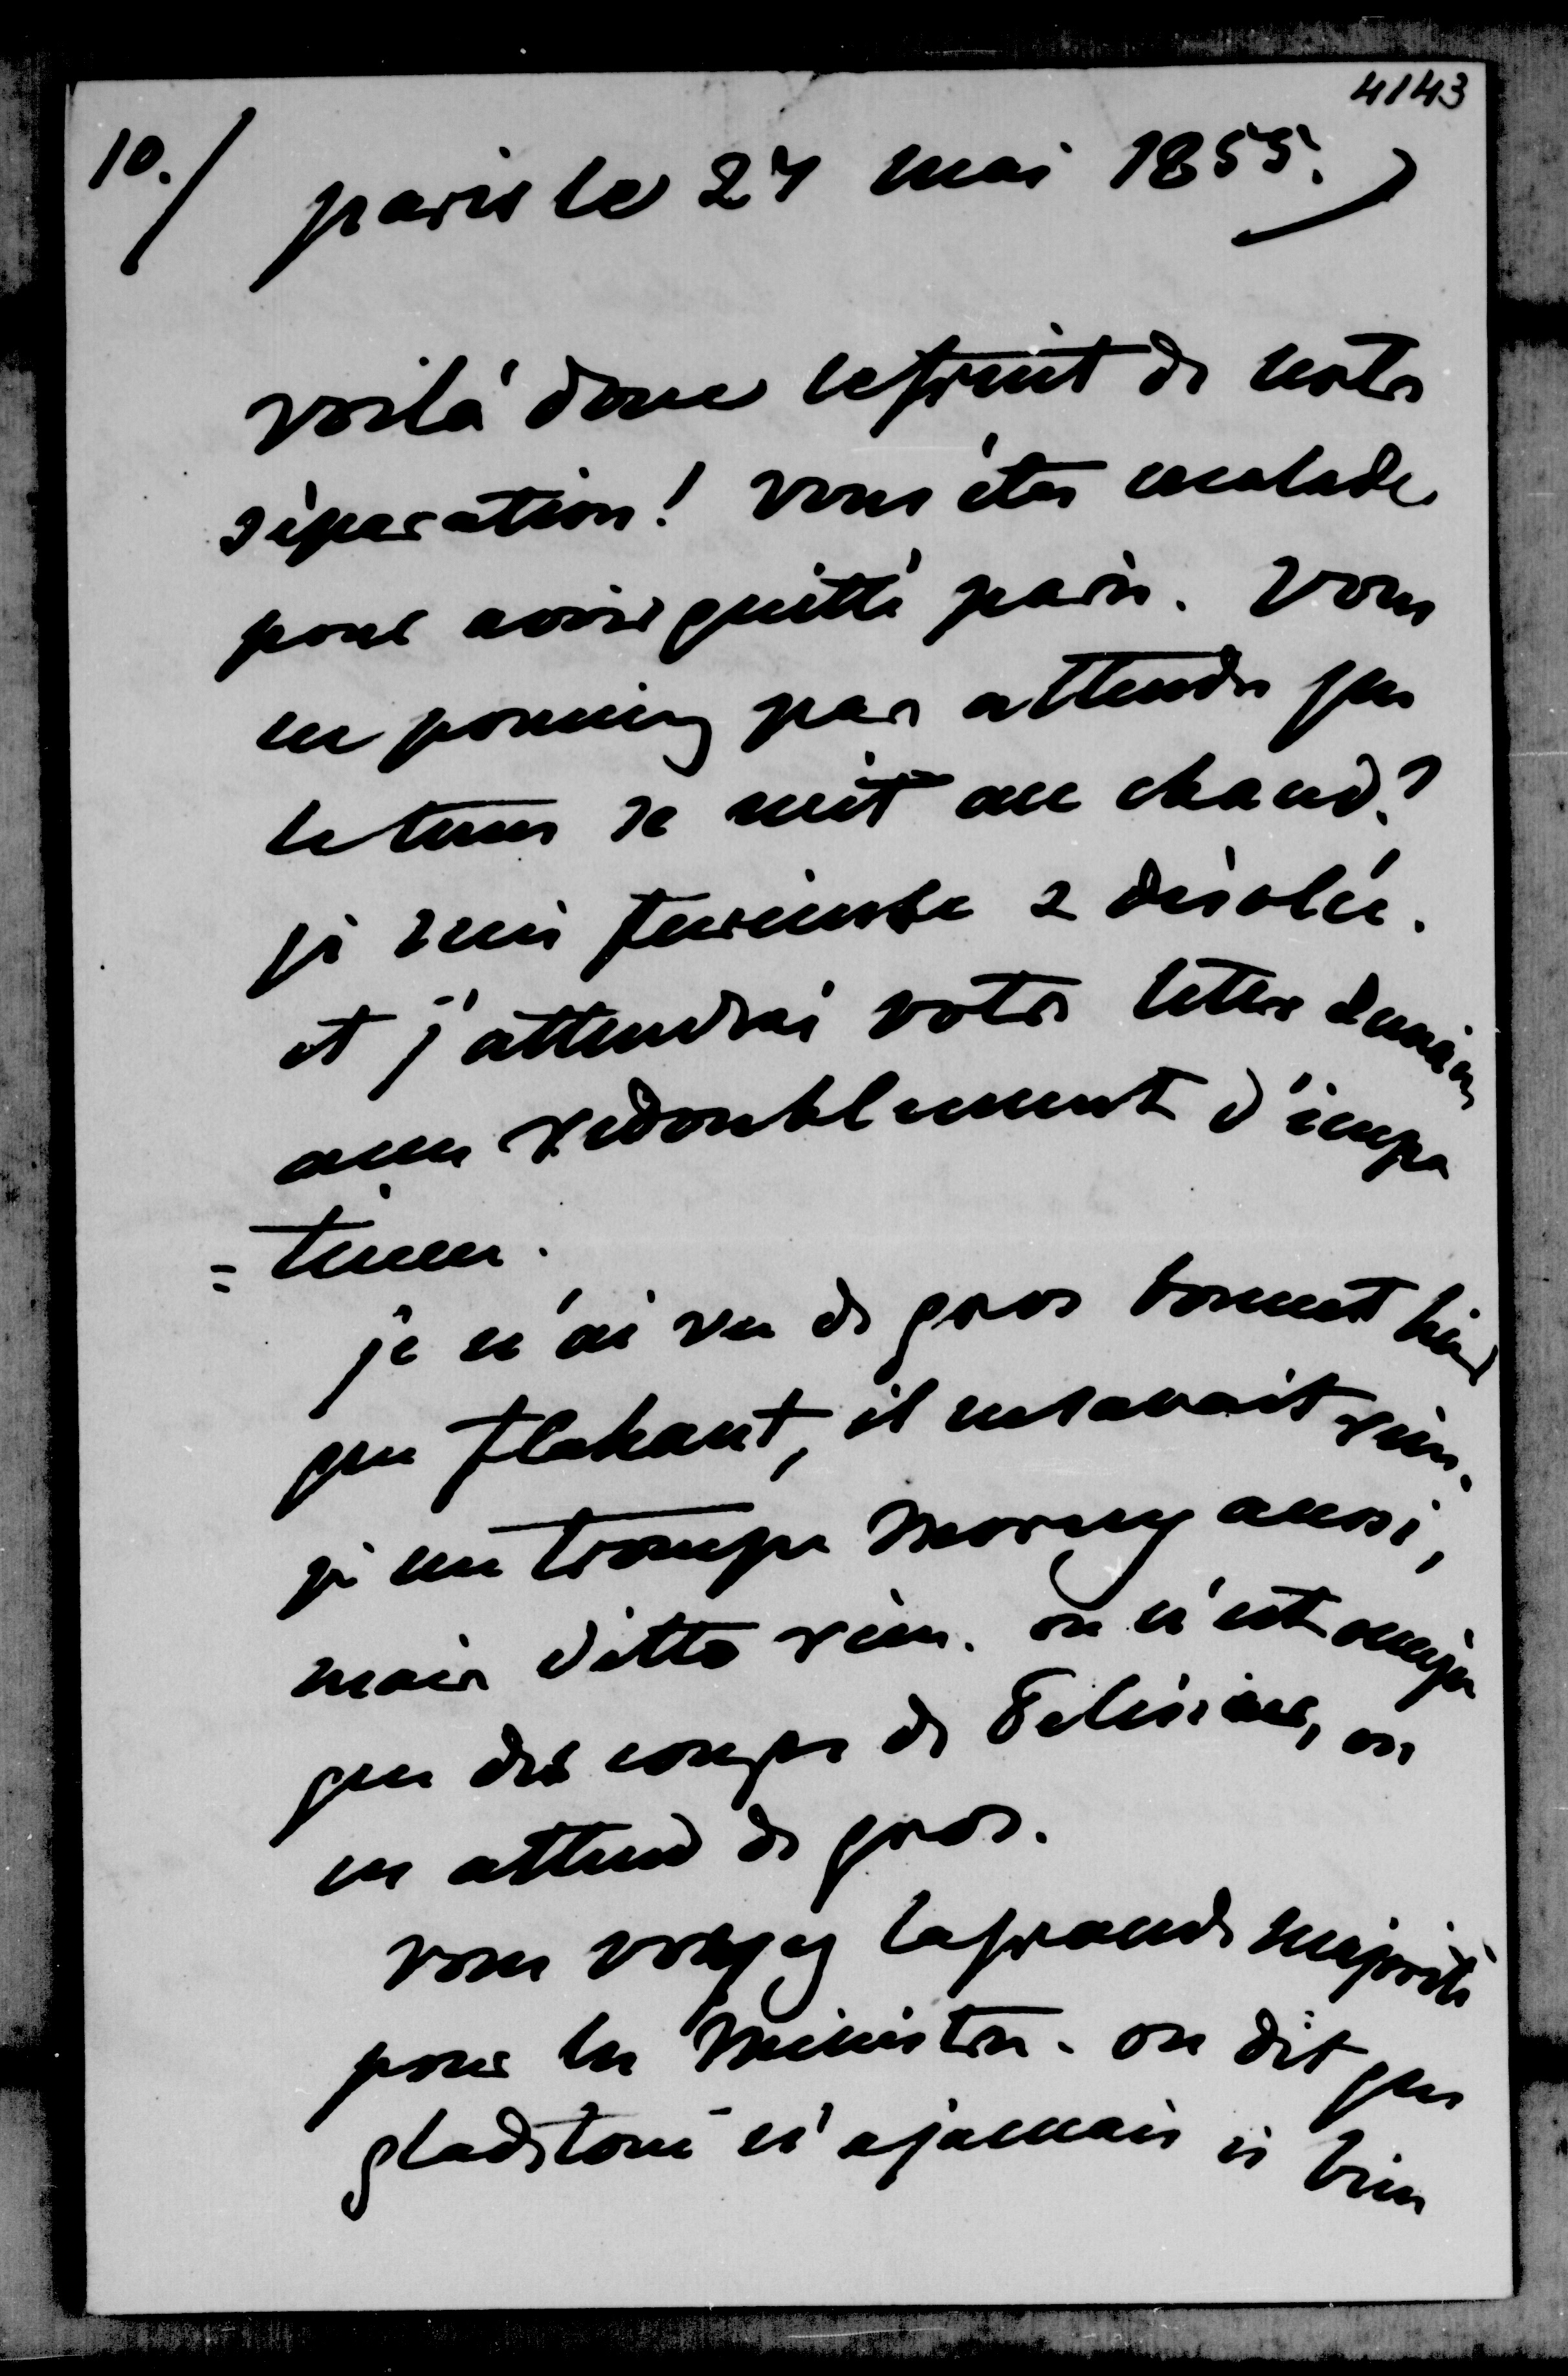 4143
10./ paris le 27 mai 1855.
voilà donc le fruit de notre
séparation! vous êtes malade
pour avoir quitté paris. vous
ne pouviez pas attendre que
le tems se mit au chaud?
je suis furieuse & désolée.
et j'attendrai votre lettre demain
avec redoublement d'impa
=tience.
je n'ai vu de gros bonnet hier
que flahaut, il ne savait rien.
je me trompe Morny aussi,
mais ditto rien. on n'est occupé
que des coups de Pelissier, on
en attend de gros.
vous voyez la grande majorité
pour les Ministres. on dit que
gladstone n'a jamais si bien